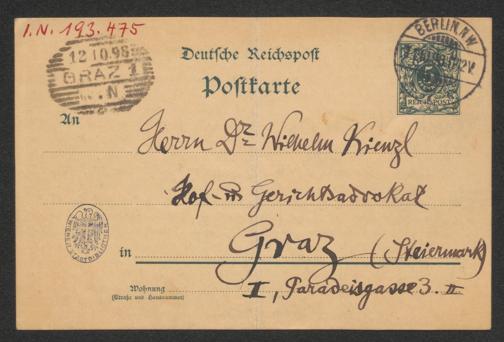 I.N. 193.475
12 10.98
GRAZ 1
Deutsche Reichspost
Postkarte
BERLIN, N.W.
REICHSPOST
An
Herrn Dr Wilhelm Kienzl
Hof- u Gerichtsadvokat
in Graz (Steiermark)
Wohnung
(Straße und Hausnummer)
I, Paradeisgasse 3. II